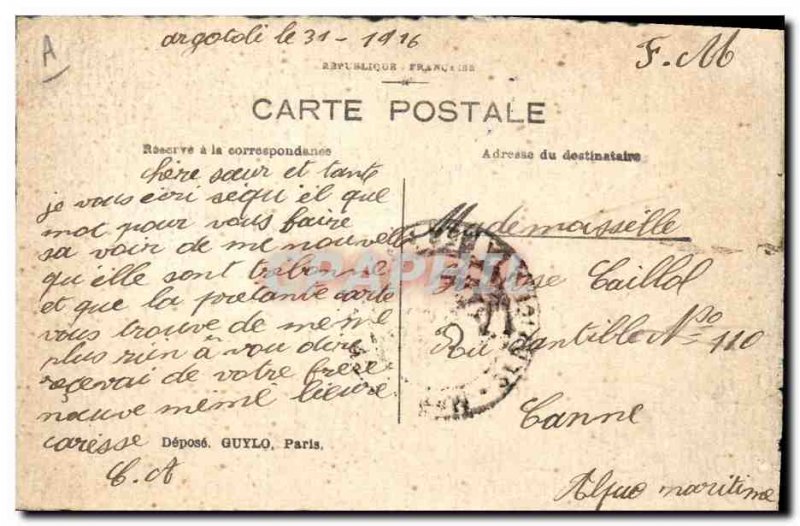 A
argotoli le 31 - 1916
F. M
RÉPUBLIQUE FRANÇAISE
CARTE POSTALE
Réservé à la correspondance
Adresse du destinataire
chère sœur et tante
je vous écri sequ'il que
mot pour vous faire
sa voir de me nouvelle
qu'elle sont tré bonne
et que la présante carte
vous trouve de même
plus rien à vou dire
reçevai de votre frère
neuve même
caresse
C. A
Mademoisselle
Caillol
Ru N° 110
Canne
Alpue maritime
Déposé. GUYLO, Paris.